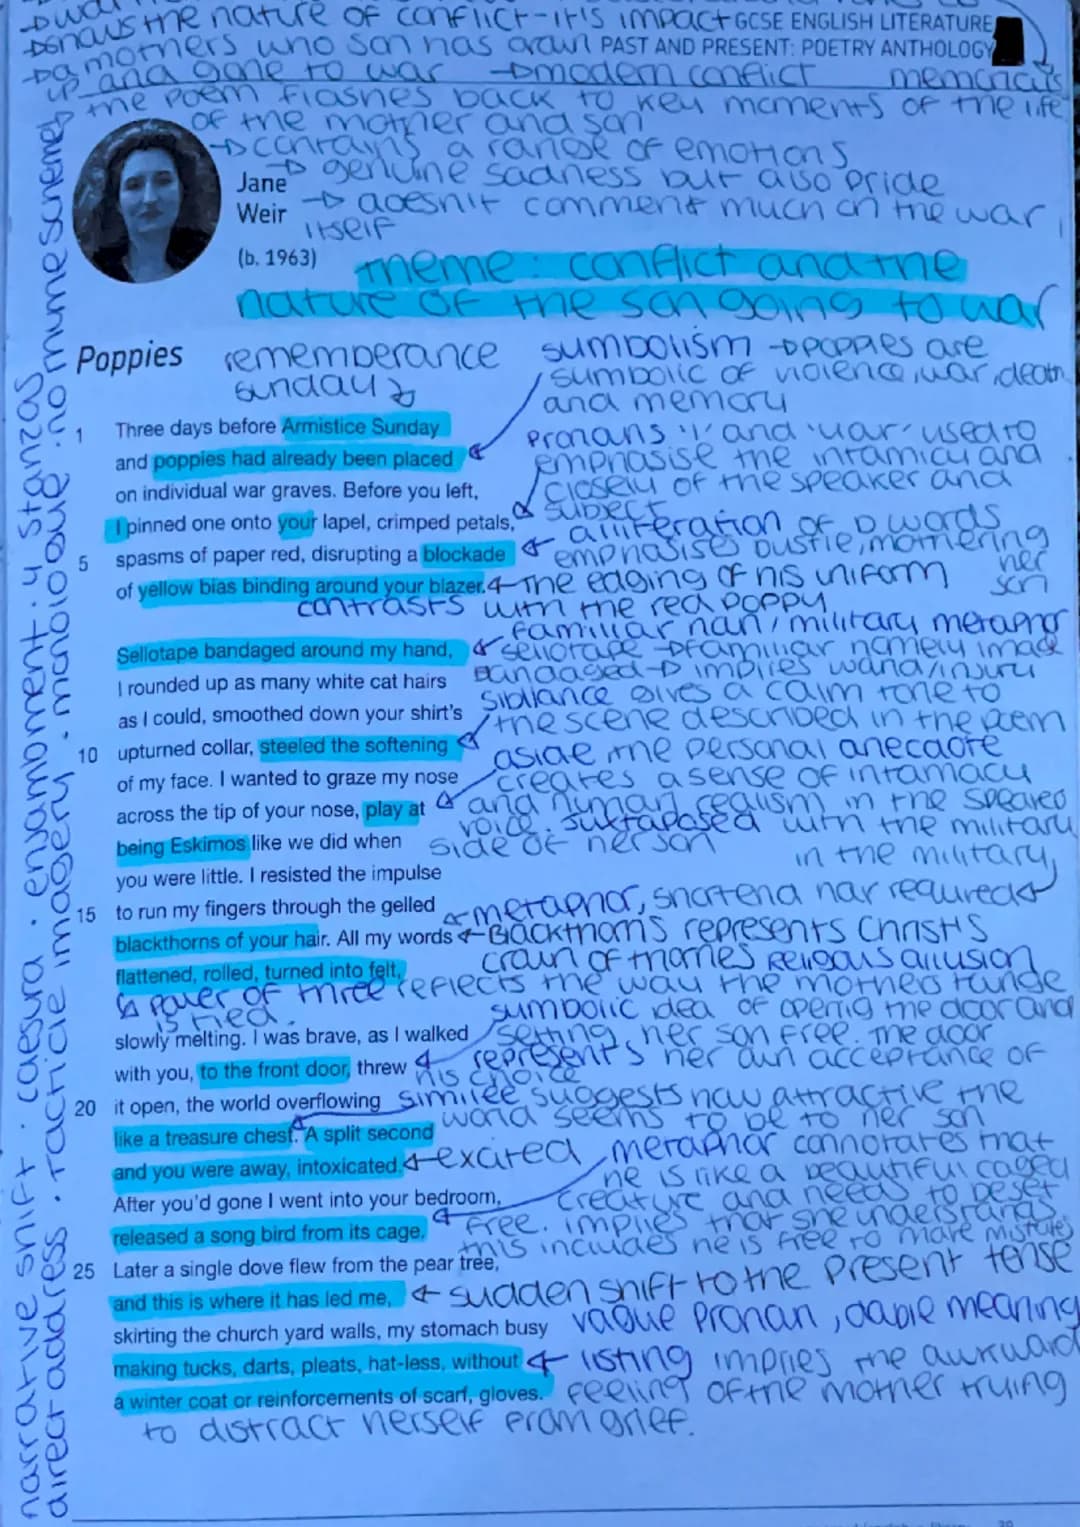 nature of conflict - it's impact GCSE ENGLISH LITERATURE
a mothers who son has grown PAST AND PRESENT: POETRY ANTHOLOGY
up and gone to war → modern conflict memories
the poem flashes back to key moments of the life
of the mother and son
→ contains a range of emotions
→ genuine sadness but also pride
Jane
Weir → doesn't comment much on the war
itself
(b. 1963) theme: conflict and the
nature of the son going to war
Poppies rememberance
sunday
sumbolism → poppies are
sumbolic of violence, war, death
and memory
1 Three days before Armistice Sunday
and poppies had already been placed
on individual war graves. Before you left,
I pinned one onto your lapel, crimped petals,
5 spasms of paper red, disrupting a blockade
of yellow bias binding around your blazer.
pronouns 'I' and 'your' used to
emphasise the intamicy and
closely of the speaker and
subject
alliteration of b words
emphasises bustle, mothering
her
son
← the edging of his uniform
contrasts with the red poppy
Sellotape bandaged around my hand,
I rounded up as many white cat hairs
as I could, smoothed down your shirt's
10 upturned collar, steeled the softening
of my face. I wanted to graze my nose
across the tip of your nose, play at
being Eskimos like we did when
you were little. I resisted the impulse
15 to run my fingers through the gelled
blackthorns of your hair. All my words
flattened, rolled, turned into felt,
military metaphor
sellotape → familiar homely image
bandaged → implies injury
gives a calm tone to
the scene described in the poem
aside the personal anecdote
creates a sense of intamacy
and human realism in the
voice. juxtaposed with the military
side of her son
in the military,
← metaphor, shortend hair required
← Blackthorns represents Christ's
crown of thornes Religous allusion
↳ power of three reflects the way the mothers tunge
is tied.
slowly melting. I was brave, as I walked
with you, to the front door, threw
20 it open, the world overflowing
like a treasure chest. A split second
and you were away, intoxicated.
After you'd gone I went into your bedroom,
released a song bird from its cage.
25 Later a single dove flew from the pear tree,
and this is where it has led me,
skirting the church yard walls, my stomach busy
making tucks, darts, pleats, hat-less, without
a winter coat or reinforcements of scarf, gloves.
sumbolic idea of opening the door and
setting her son free. The door
represents her own acceptance of
his choice
similee suggests how attractive the
world seems to be to her son
← excited
metaphor connotates that
he is like a beautiful caged
creature and needs to be set
free. implies that she understands
this includes he is free to make mistakes
← sudden shift to the present tense
vague pronoun, double meaning
← listing implies the awkward
feeling of the mother trying
to distract herself from grief.
narrative shift. caesura. enjambment. 4 stanzas
direct address. tacticle imagery. monologue. no rhumescheme